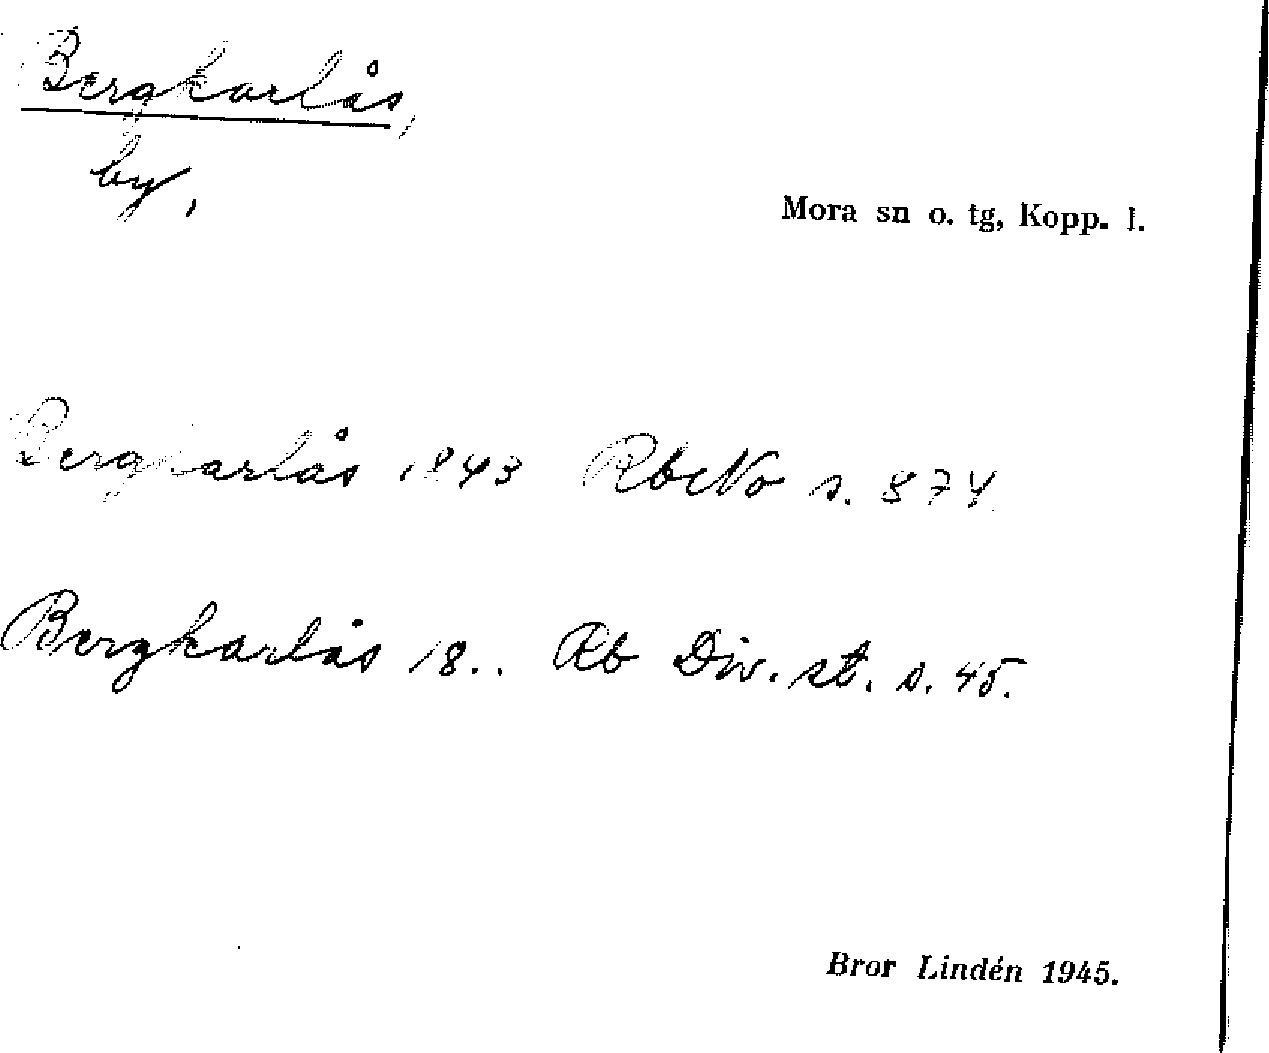 Bergkarlås,
by,
Mora sn o. tg, Kopp. l.
Bergkarlås 1843 RbcNo s. 874.
Bergkarlås 18.. Rb Div. st. s. 45.
Bror Lindén 1945.